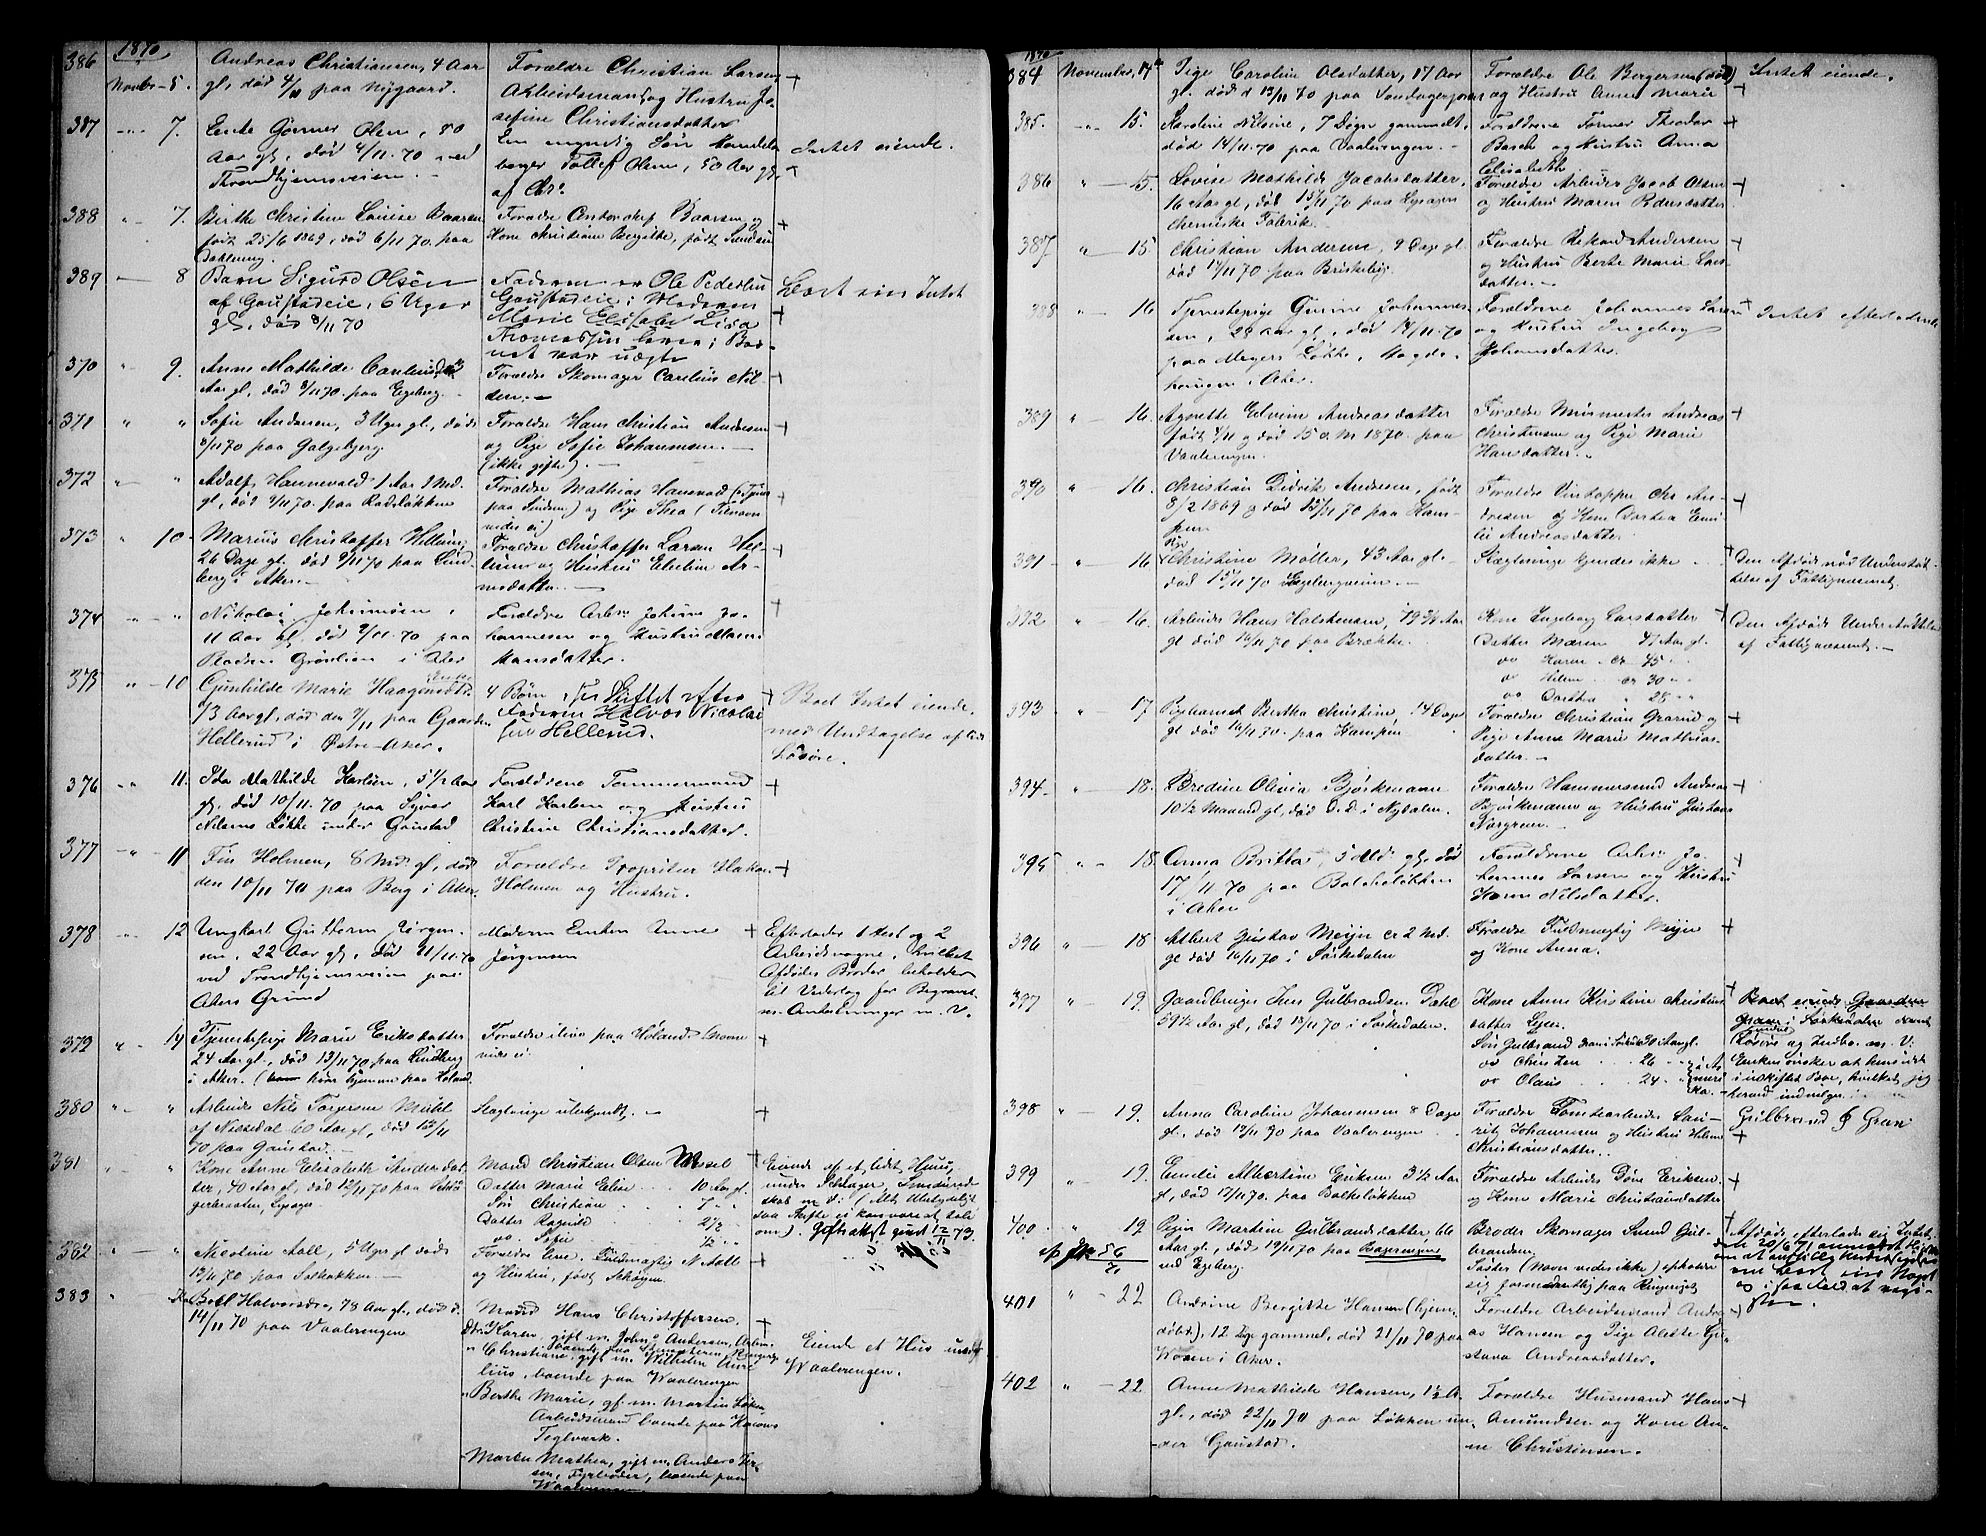 1870
386 Novbr 5. Andreas Christiansen, 4 Aar
gl, død 4/11 paa Nygaard.
Forældre Christian Larsen
Arbeidsmand og Hustru Jo-
sefine Christiansdatter +
387 " 7. Enke Gunner Olsen, 80
Aar gl., død 4/11.70 ved
Throndhjemsveien.
En myndig Søn Handels-
borger Tollef Olsen, 50 Aar gl.
af Chr.
Intet eiende.
388 " 7. Birthe Christine Louise Baarsen
født 25/6 1869, død 6/11 70. paa
Forældre Baarsen og
Kone Christiane Bergitte, født +
389 8 Barn Sigurd Olsen
af Goustadeie, 6 Uger
gl., død 8/11 70
Faderen er Ole Pedersen
Goustadeie; Moderen
Marie Elisabet
Thomasen; Bar-
net var uægte +
Boet eier Intet
370 " 9. Anne Mathilde Carelius
Aar gl, død 8/11 70. paa Egeberg.
Forældre Skomager Carelius Nil-
sen. +
371 " " Sofie Andersen, 3 Uger gl., død
8/11 70 paa Galgebjerg.
Forældre Hans Christian Andersen
og Pige Sofie Johannesen.
(ikke gifte). +
372 " " Adolf Hannevald 1 Aar 9 Md.
gl, død 9/11 70. paa Rodeløkken
Forældre Mathias Hansvad
og Pige Thea +
373 " 10. Marius Christoffer Hellum
26 Dage gl. død 9/11 70 paa Lind-
berg i Aker.
Forældre Christoffer Larsen Hel-
lum og Hustru Eveline Ar-
nesdatter. +
374 " " Nikolai Johansen,
11 Aar gl, død 9/11.70 paa
Pladsen Grønlien i Aker
Forældre Arbr. Johan Jo-
hannesen og Hustru Maren
Hansdatter. +
375 " 10 Gunhilde Marie Haagensdtr Enke
73 Aar gl, død den 7/11 paa Gaarden
Hellerud i Østre-Aker.
4 Børn, see Skiftet efter
Faderen Halvor Nicolai-
sen Hellerud. +
Boet Intet eiende
med Undtagelse af lidt
Løsøre.
376 " 11. Ida Mathilde Karlsen, 5 1/2 Aar
gl. død 10/11.70 paa Syver
Nilsens Løkke under Goustad
Forældrene Tømmermand
Karl Karlsen og Hustru
Christine Christiansdatter. +
377 " 11 Finn Holmen, 8 Md gl, død
den 10/11 70 paa Berg i Aker.
Forældre Proprietær Hakon
Holmen og Hustru. +
378 " 12 Ungkarl Guttorm Jørgen-
sen, 22 Aar gl., død 11/11.70
ved Trondhjemsveien paa
Akers Grund
Moderen Enken Anne
Jørgensen +
Efterlader 1 Hest og 2
Arbeidsvogne, hvilket
Afdødes Broder beholder
til Vederlag for Begravel-
ses-Omkostninger m. V.
379 " 14 Tjenestepige Marie Eriksdatter
24 Aar gl., død 13/11 70 paa Lindberg
i Aker. (hun hjemme paa Høland.
Forældre i live paa Høland, Navne
vides ei. +
380 " " Arbeider Nils Torgersen Mühl
af Nitsedal 60 Aar gl, død 13/11
70 paa Goustad.
Slægtninge ubekjendt. +
381 " " Kone Anne Elisabeth Andersdat-
ter, 40 Aar gl, død 12/11 70 paa
Lysager.
Mand Christian Olsen Wessel
Datter Marie Eline 10 Aar gl.
Søn Christian 7 "
Datter Ragnild 2 1/2 "
do. Sofie 1/2 " +
Eiende af et lidet Huus,
under Lysager, Smedered-
skab m. v. (Alt Ubetydeligt
saa Skifte ei kan være at tale
om).
382 " " Nicoline Aall, 5 Uger gl død
13/11 70 paa Solbakken.
Forældre Fuldmægtig N. Aall
og Hustru, født Schøyen. +
383 " Bell Halvorsdtr, 78 Aar gl., død d.
14/11 70 paa Vaalerengen
Mand Hans Christoffersen. +
Dtr. Karen, gift m. Johns Andersen, Arbm.
" Christiane, gift m. Wilhelm Aure-
lius, boende paa Waalerengen
" Berthe Marie, gf. m. Martin Løken
Arbeidsmand boende paa Havens
Teglværk.
" Maren Mathea, gift m. Anders Lar-
sen, Fyrbøder, boende paa
Waalerengen
Eiende et Hus under
Waalerengen.
1870
384 November, 14de Pige Caroline Olsdatter, 17 Aar
gl. død d 13/11 70 paa
Forældre Ole Bergersen (død)
og Hustru Anne Marie +
Intet eiende.
385. " 15. Karoline Nilsine, 7 Døgn gammel,
død 14/11.70 paa Vaalerengen.
Forældrene Former Theodor
Basch og Hustru Anna
Elisabeth +
386 " 15. Lovise Mathilde Jacobsdatter,
16 Aar gl, død 15/11 70 paa Lysager
chemiske Fabrik.
Forældre Arbeider Jacob Olsen
og Hustru Maren Pedersdatter +
387 " 15 Christian Andersen, 9 Dage gl.
død 13/11 70 paa Briskebye.
Forældre Rikard Andersen
og Hustru Berte Marie Lars-
datter. +
388 " 16 Tjenestepige Gurine Johannes-
sen, 28 Aar gl., død 14/11.70
paa Meyers Løkke, Hagde-
haugen i Aker.
Forældrene Johannes Larsen
og Hustru Ingeborg
Johansdatter. +
Intet efterladende
389 " 16. Agnette Edvine Andreasdatter
født 4/11 og død 15 d. M 1870. paa
Vaalerengen.
Forældre Muurmester Andreas
Christensen og Pige Marie
Hansdatter. +
390 " 16. Christian Didrik Andresen, født
8/2 1869 og død 15/11 70 paa Kam-
pen
Forældre Vintapper Chr An-
dresen og Kone Dorthea Emi-
lie Andreasdatter. +
391 " 16 Pige Christine Møller, 43 Aar gl.
død 15/11 70 Egebergveien.
Slægtninge kjendes ikke. +
Den Afdøde nød Understøt-
telse af Fattigvæsenet.
392 " 16. Arbeider Hans Halstensen, 79 3/4 Aar
gl død 16/11 70 paa Brække.
Kone Ingeborg Larsdatter
Datter Maren 47 Aar gl.
do Karen cr 45 " "
do Helene cr 30 " "
do Dorthea " 28 " " +
Den Afdøde Understøttelse
af Fattigvæsenet.
393 " 17 Pigebarnet Bertha Christine, 14 Dage
gl død 16/11 70. paa Kampen
Forældre Christian Grarud og
Pige Anne Marie Mathias-
datter. +
394 " 18. Bredine Olivia Bjørkemann
10 1/2 Maaned gl, død D. D. i Nydalen.
Forældre Hammersmed Andreas
Bjørkemann og Hustru Gustava
Norgreen. +
395 " 18. Anna Britta, 5 Md. gl, død
17/11 70 paa Bolteløkken
i Aker
Forældrene Arbr. Jo-
hannes Larsen og Hustru
Karen Nilsdatter. +
396 " 18 Albert Gustav Meijer cr 2 Md.
gl død 16/11 70 i Sørkedalen
Forældre Fuldmægtig Meijer
og Kone Anna. +
397 " 19. Gaardbruger Iver Gulbrandsen Dahl
59 1/2 Aar gl, død 13/11 70 i Sørkedalen.
Kone Anne Kirstine Christians-
datter
Søn Gulbrand 30 Aar gl.
do Christian 26 "
do Olaus 24 " i Ame-
rika. +
Boet eiende Gaarden
Gran i Sørkedalen samt
Løsøre og Indbo m. V.
Enken ønsker at hensidde
i uskiftet Boe, hvilket jeg
herved indvilger.
Gulbrand J Gran
398 " 19. Anna Caroline Johannesen 8 Dage
gl., død 17/11 70 paa Vaalerengen
Forældre Tomtearbeider Lau-
ritz Johannesen og Hustru Helene
Christiansdatter. +
399 " 19. Emilie Albertine Eriksen 3 1/2 Aar
gl, død 17/11 70. paa Bolteløkken
Forældre Arbeider Døne Eriksen
og Kone Marie Christiansdatter +
400 " 19 Pigen Martine Gulbrandsdatter, 66
Aar gl., død 19/11 70 paa Bagerengen
ved Egeberg.
Broder Skomager Svend Gul-
brandsen.
Søster (Navn vides ikke) opholder
sig formentlig paa Ringerige +
Afdøde efterlader sig Intet.
401 " 22 Andrine Bergitte Hansen (hjem-
døbt), 12 Dage gammel, død 21/11 70 paa
Wøien i Aker.
Forældre Arbeidsmand Andre-
as Hansen og Pige Alette Gu-
stava Andreasdatter. +
402 " 22 Anne Mathilde Hansen, 1 1/2 A.
gl., død 22/11 70 paa Løkken un-
der Goustad.
Forældre Husmand Hans
Amundsen og Kone An-
ne Christensen. +